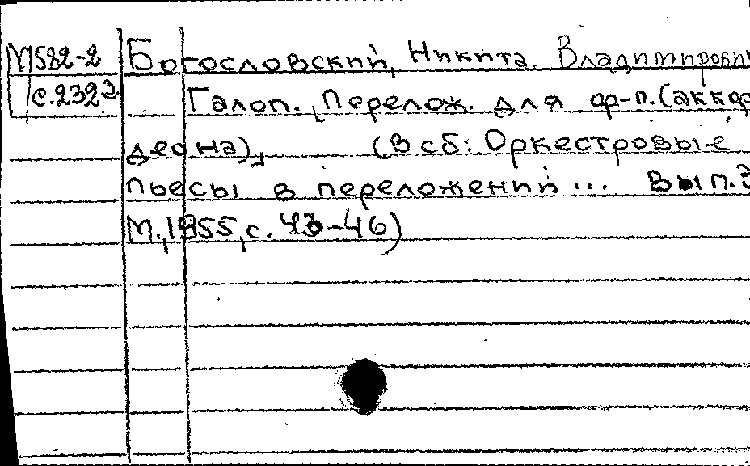 М582-2
с.2323
Богословский, Никита Владимирович
Галоп. Перелож. для ф-п. (аккор
деона), (В сб: Оркестровые
пьесы в переложений ... Вып.3
М., 1955, с. 43-46)